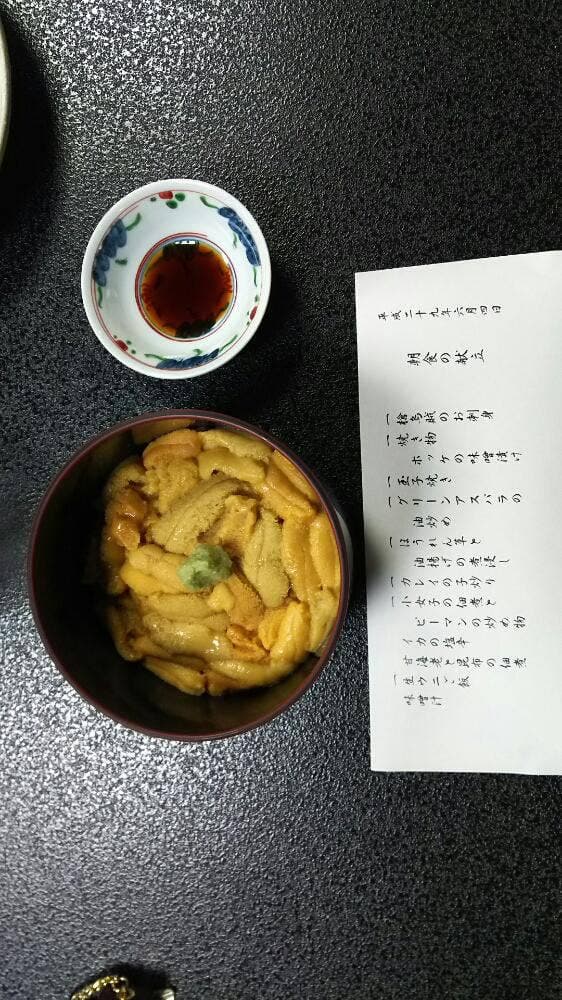 平成二十九年六月四日
朝食の献立
一 槍烏賊のお刺身
一 焼き物
ホッケの味噌漬け
一 玉子焼き
一 グリーンアスパラの
油炒め
一 ほうれん草と
油揚げの煮浸し
一 カレイの子炒り
一 小女子の佃煮と
ピーマンの炒め物
イカの塩辛
甘海老と昆布の佃煮
一 生ウニご飯
味噌汁